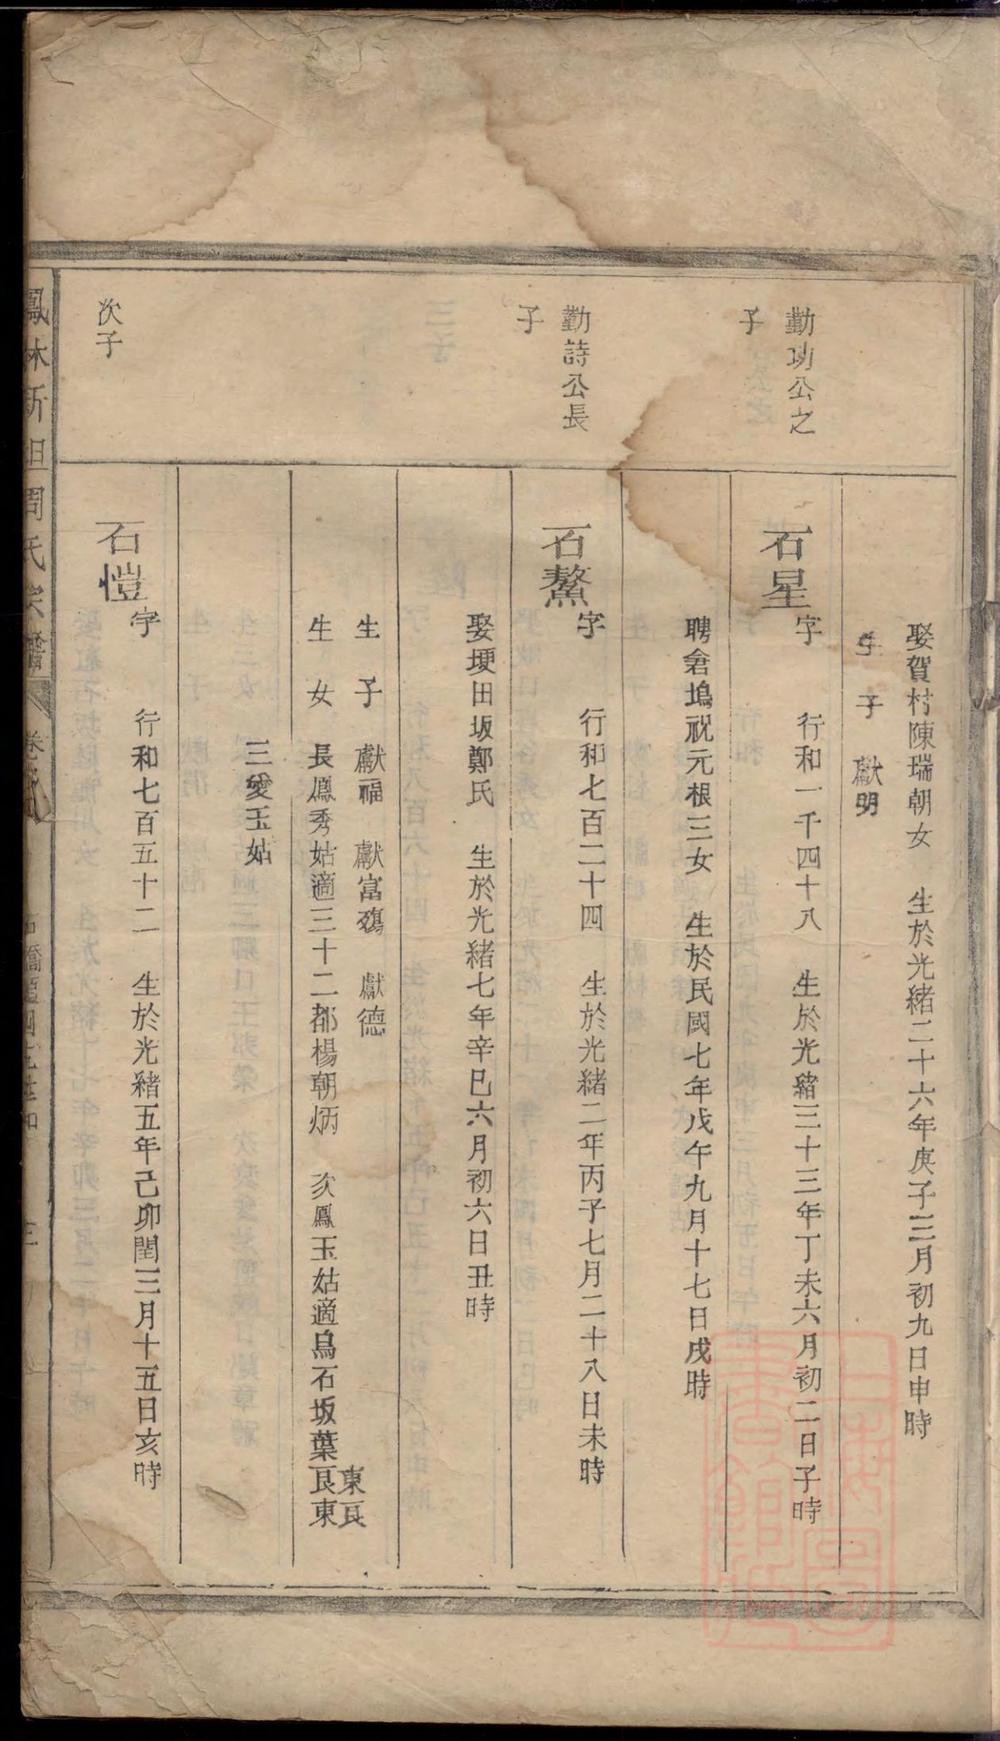 娶賀村陳瑞朝女 生於光緒二十六年庚子三月初九日申時
生子 獻明
勤功公之
子
石星
字 行和一千四十八 生於光緒三十三年丁未六月初二日子時
聘倉塢祝元根三女 生於民國七年戊午九月十七日戌時
勤詩公長
子
石鰲
字 行和七百二十四 生於光緒二年丙子七月二十八日未時
娶埂田坂鄭氏 生於光緒七年辛巳六月初六日丑時
生子 獻福 獻富殤 獻德
生女 長鳳秀姑適三十二都楊朝炳 次鳳玉姑適烏石坂葉艮東
東艮
三愛玉姑
次子
石愷
字 行和七百五十二 生於光緒五年己卯閏三月十五日亥時
鳳林新 周氏宗譜 卷